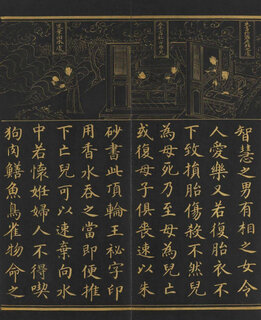 智慧之男有相之女令
人愛樂又若復胎衣不
下致損胎傷殺不然兒
為母死乃至母為兒亡
或復母子俱喪速以朱
砂書此頂輪王秘字印
用香水吞之當即便推
下亡兒可以速棄向水
中若懷妊婦人不得喫
狗肉鱔魚鳥雀物命之